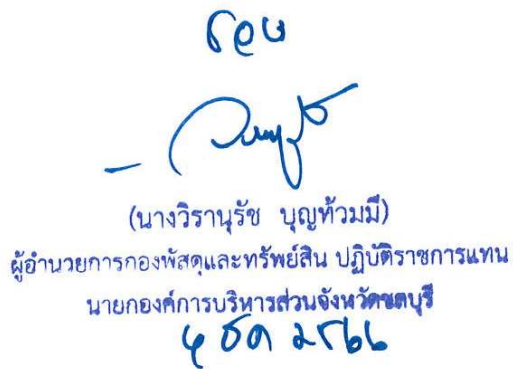 (นางวิรานุรัช บุญท้วมมี)
ผู้อำนวยการกองพัสดุและทรัพย์สิน ปฏิบัติราชการแทน
นายกองค์การบริหารส่วนจังหวัดชลบุรี
ธค ๒๕๖๖